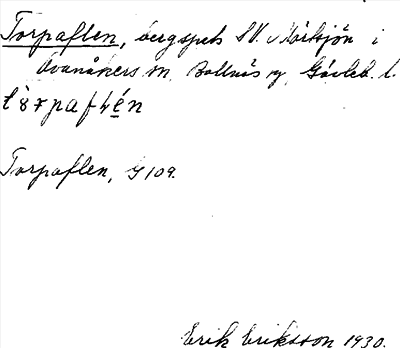 Torpaflen, bergspets SV. Mörksjön i
Ovanåkers sn. Bollnäs ng. Gävleb. l.
Torpaflen, G 109.
Erik Eriksson 1930.